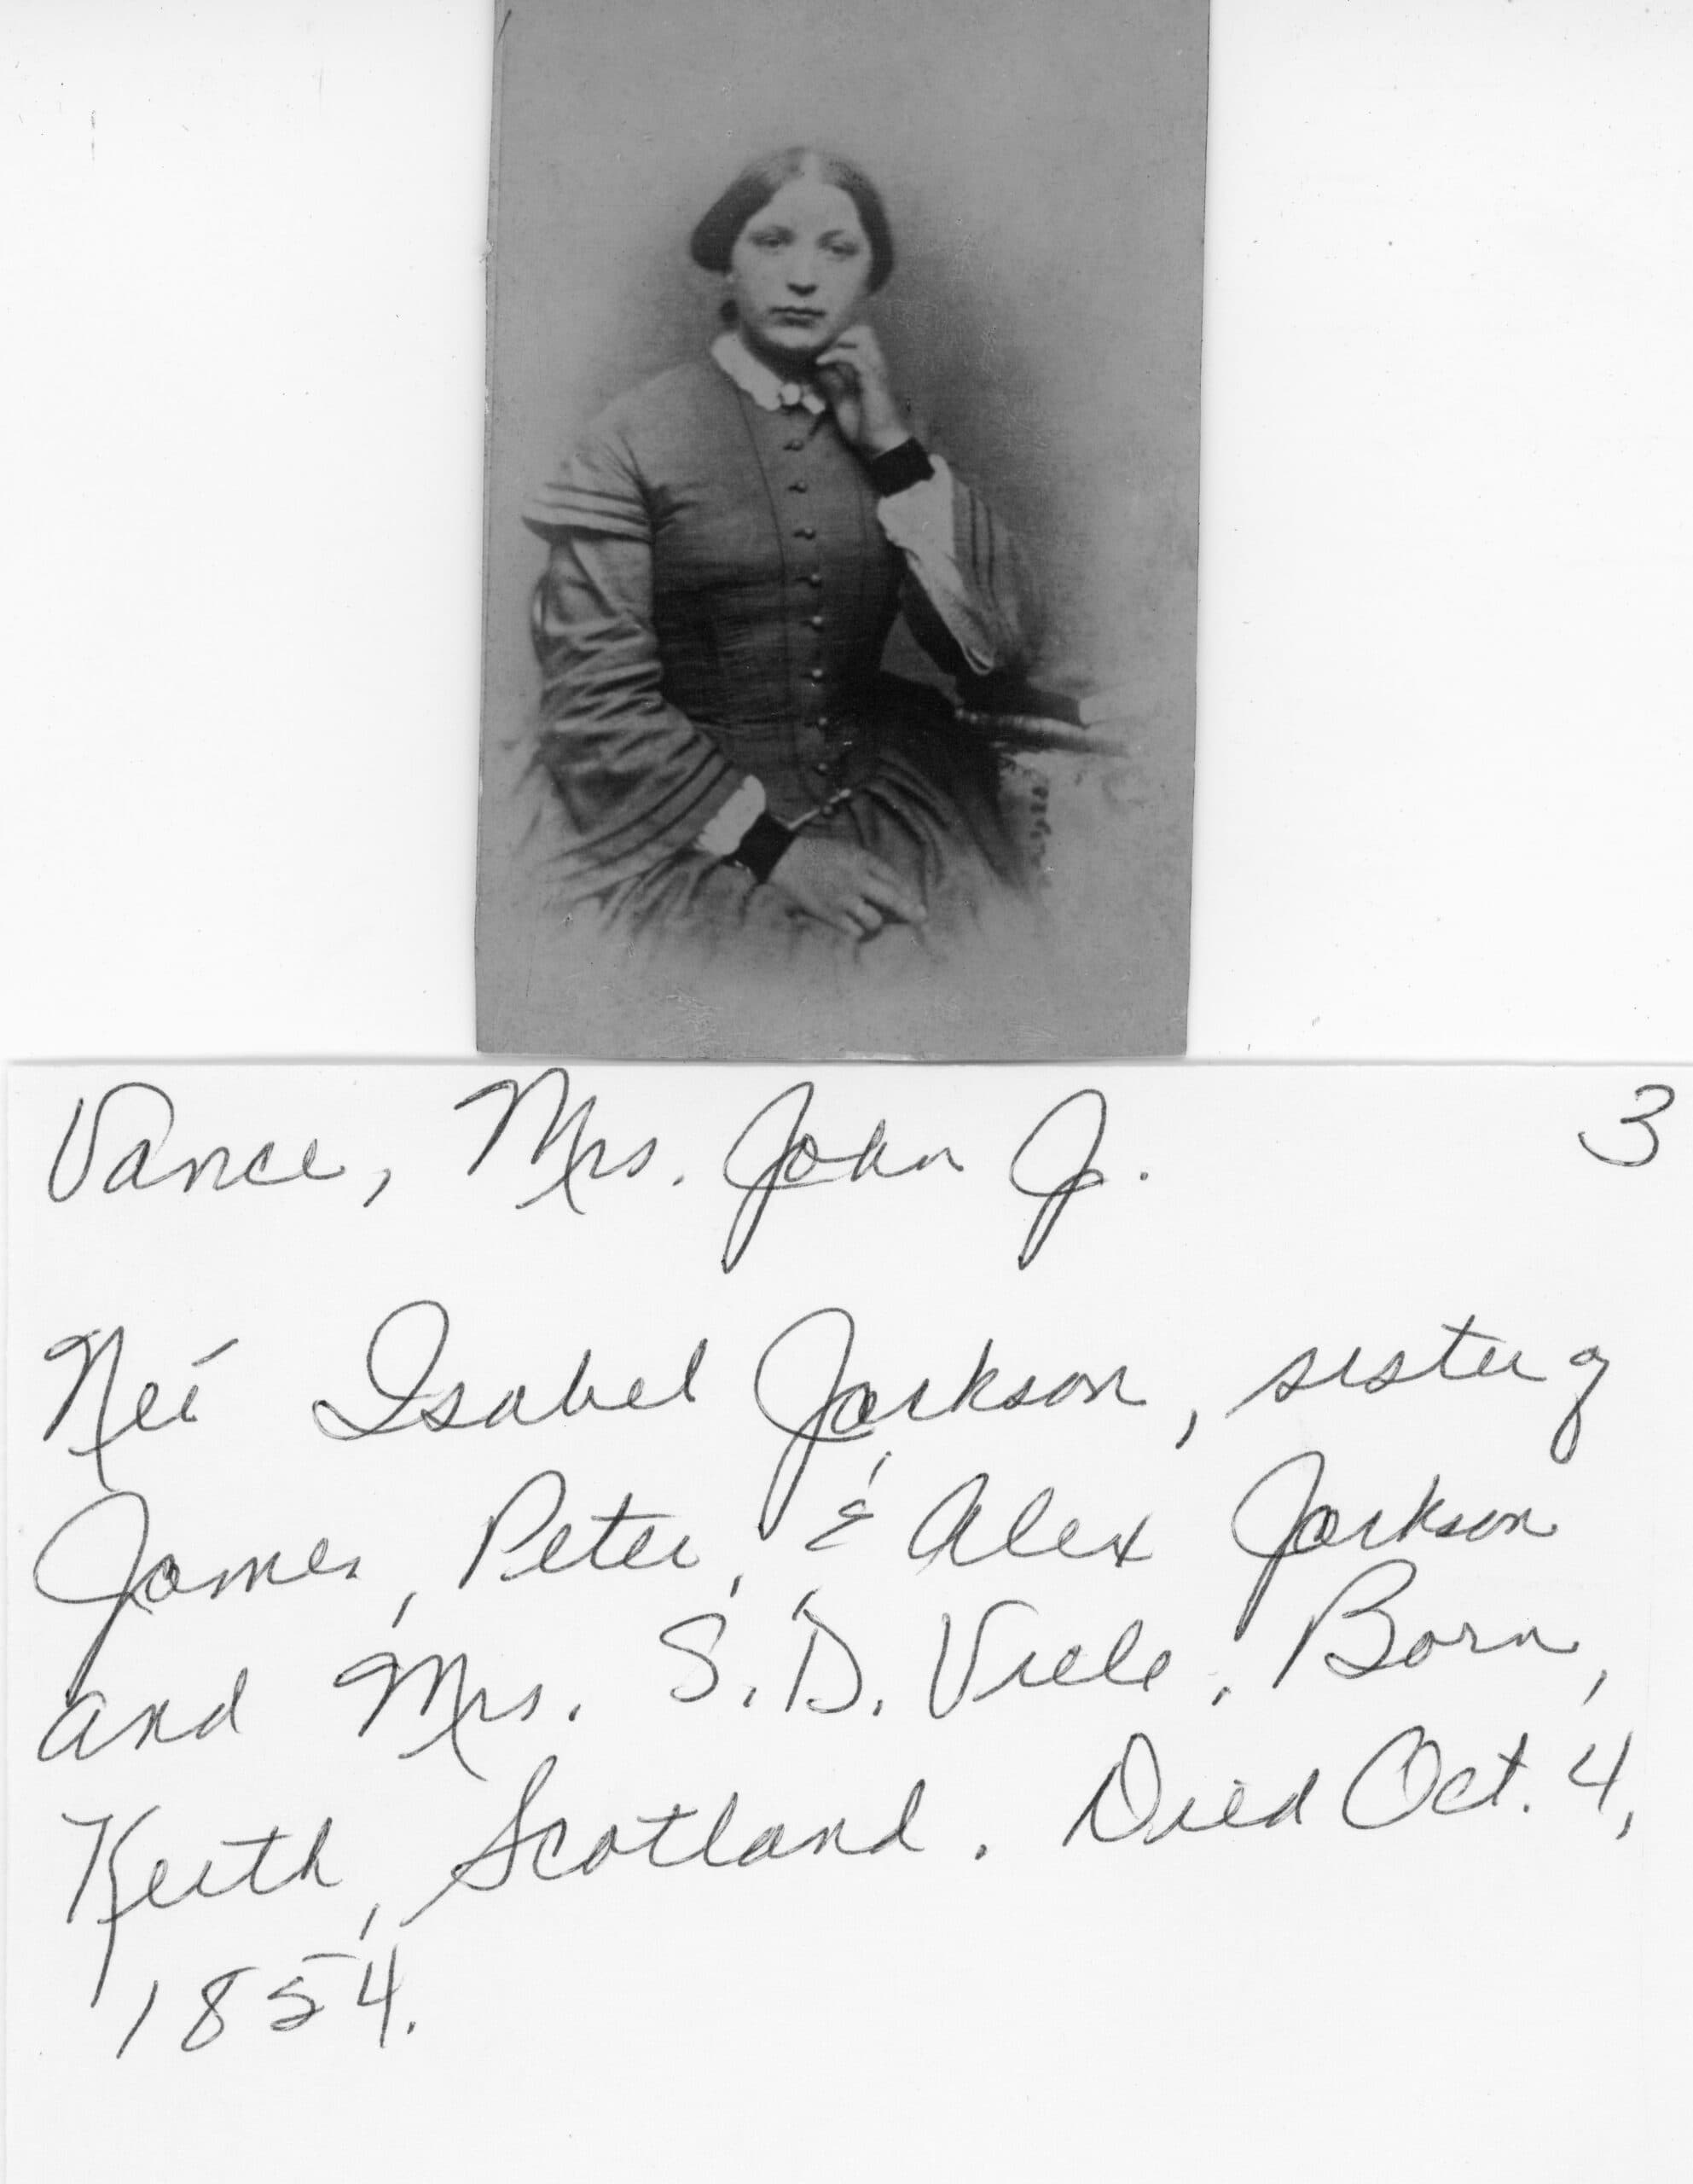 Vance, Mrs. John J. 3
Neé Isabel Jackson, sister of
James, Peter, & Alex Jackson
and Mrs. S. D. Viele. Born,
Keith, Scotland. Died Oct. 4,
1854.